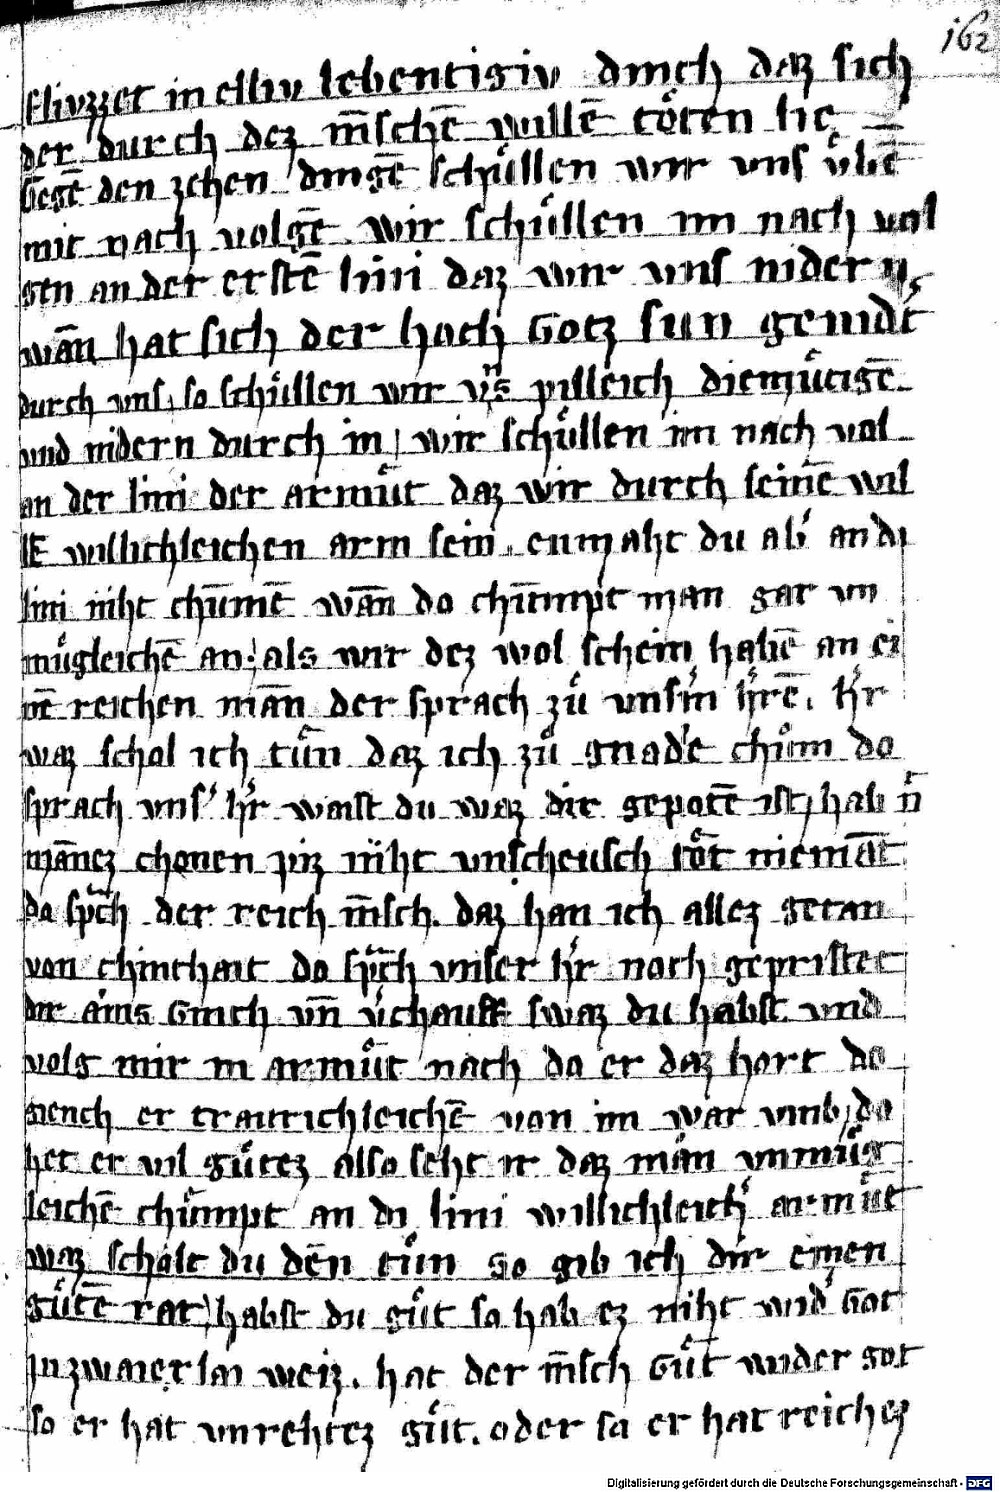 162
flivzzet in elliv lebentigiv dinch daz sich
der durch dez m̄schē willē tôten lie
Gegē den zehen dingē schůllen wir vns ůbē
mit nach volgē. wir schůllen im nach vol
gen an der erstē lini daz wir vns nidern,
wān hat sich der hoch Gotz sun genidt̓
durch vns, so schůllen wir vns pilleich diemůtigē
und nidern durch in, wir schůllen im nach vol
an der lini der armůt daz wir durch seinē wil
lE willichleichen arm sein. enmaht du ab̓ an di
lini niht chūmē wān do chūmpt man gar vn
můgleichē an. als wir dez wol schein habē an ei
nē reichen mān der sprach zů vnsm̓ h̓rē. h̓r
waz schol ich tůn daz ich zů gnadē chům do
sprach vns̓ h̓r waist du waz dir gepotē ist, hab n̄
mānez chonen piz niht vnscheusch tôt niemāt
da sp̄ch der reich m̄sch. daz han ich allez getan
von chinthait do sp̄ch vnser h̓r noch gepristet
dir ains Ginch vn̄ v̓chauff swaz du habst vnd
volg mir in armůt nach do er daz hort do
giench er traurichleichē von im war vmb, do
het er vil gůtez also seht ir daz mån vnmůg
leichē chůmpt an di lini willichleich̓ armůt
waz scholt du dēn tůn so gib ich dir einen
gůtē rat, habst du gůt so hab ez niht wid̓ Got
in zwaierlai weiz. hat der m̄sch Gůt wider got
so er hat vnrehtez gůt. oder so er hat reichez
Digitalisierung gefördert durch die Deutsche Forschungsgemeinschaft - DFG